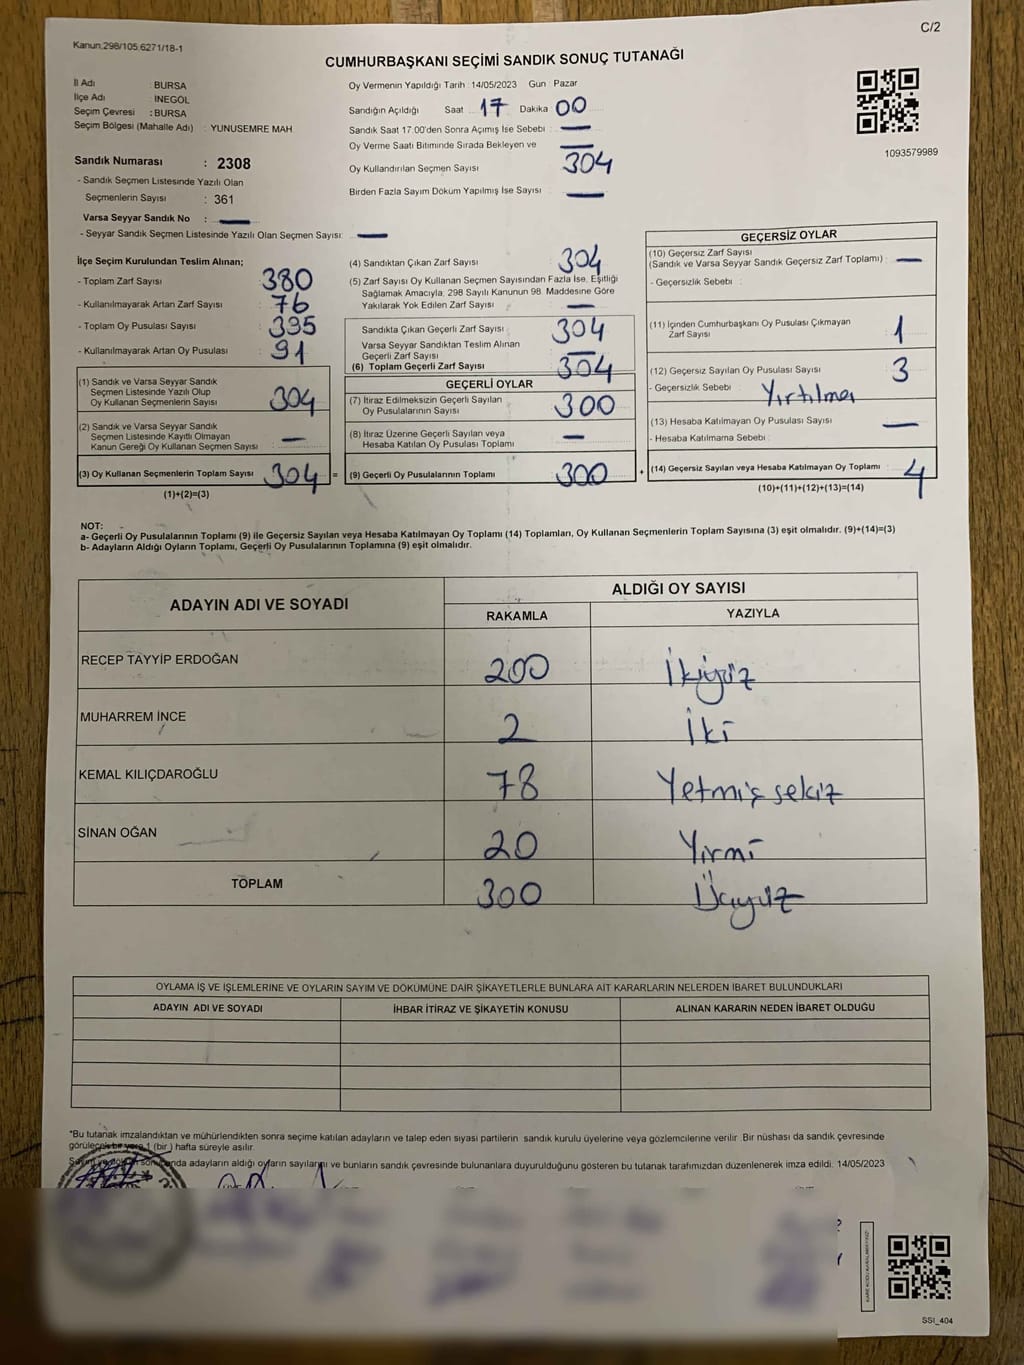 C/2
Kanun.298/105.6271/18-1
CUMHURBAŞKANI SEÇİMİ SANDIK SONUÇ TUTANAĞI
İl Adı : BURSA
İlçe Adı : İNEGÖL
Seçim Çevresi : BURSA
Seçim Bölgesi (Mahalle Adı) : YUNUSEMRE MAH
Sandık Numarası : 2308
- Sandık Seçmen Listesinde Yazılı Olan
Seçmenlerin Sayısı : 361
Varsa Seyyar Sandık No : —
- Seyyar Sandık Seçmen Listesinde Yazılı Olan Seçmen Sayısı: —
Oy Vermenin Yapıldığı Tarih : 14/05/2023 Gün : Pazar
Sandığın Açıldığı Saat 17 Dakika 00
Sandık Saat 17.00'den Sonra Açımış İse Sebebi : —
Oy Verme Saati Bitiminde Sırada Bekleyen ve —
Oy Kullandırılan Seçmen Sayısı 304
Birden Fazla Sayım Döküm Yapılmış İse Sayısı : —
1093579989
İlçe Seçim Kurulundan Teslim Alınan;
- Toplam Zarf Sayısı : 380
- Kullanılmayarak Artan Zarf Sayısı : 76
- Toplam Oy Pusulası Sayısı : 395
- Kullanılmayarak Artan Oy Pusulası : 91
(1) Sandık ve Varsa Seyyar Sandık
Seçmen Listesinde Yazılı Olup
Oy Kullanan Seçmenlerin Sayısı : 304
(2) Sandık ve Varsa Seyyar Sandık
Seçmen Listesinde Kayıtlı Olmayan
Kanun Gereği Oy Kullanan Seçmen Sayısı : —
(3) Oy Kullanan Seçmenlerin Toplam Sayısı : 304 =
(1)+(2)=(3)
(4) Sandıktan Çıkan Zarf Sayısı : 304
(5) Zarf Sayısı Oy Kullanan Seçmen Sayısından Fazla İse, Eşitliği
Sağlamak Amacıyla; 298 Sayılı Kanunun 98. Maddesine Göre
Yakılarak Yok Edilen Zarf Sayısı : —
Sandıkta Çıkan Geçerli Zarf Sayısı : 304
Varsa Seyyar Sandıktan Teslim Alınan
Geçerli Zarf Sayısı : —
(6) Toplam Geçerli Zarf Sayısı : 304
GEÇERLİ OYLAR
(7) İtiraz Edilmeksizin Geçerli Sayılan
Oy Pusulalarının Sayısı : 300
(8) İtiraz Üzerine Geçerli Sayılan veya
Hesaba Katılan Oy Pusulası Toplamı : —
(9) Geçerli Oy Pusulalarının Toplamı : 300 +
GEÇERSİZ OYLAR
(10) Geçersiz Zarf Sayısı
(Sandık ve Varsa Seyyar Sandık Geçersiz Zarf Toplamı) : —
- Geçersizlik Sebebi :
(11) İçinden Cumhurbaşkanı Oy Pusulası Çıkmayan
Zarf Sayısı : 1
(12) Geçersiz Sayılan Oy Pusulası Sayısı : 3
- Geçersizlik Sebebi : Yırtılma
(13) Hesaba Katılmayan Oy Pusulası Sayısı : —
- Hesaba Katılmama Sebebi :
(14) Geçersiz Sayılan veya Hesaba Katılmayan Oy Toplamı : 4
(10)+(11)+(12)+(13)=(14)
NOT:
a- Geçerli Oy Pusulalarının Toplamı (9) ile Geçersiz Sayılan veya Hesaba Katılmayan Oy Toplamı (14) Toplamları, Oy Kullanan Seçmenlerin Toplam Sayısına (3) eşit olmalıdır. (9)+(14)=(3)
b- Adayların Aldığı Oyların Toplamı, Geçerli Oy Pusulalarının Toplamına (9) eşit olmalıdır.
ADAYIN ADI VE SOYADI
ALDIĞI OY SAYISI
RAKAMLA YAZIYLA
RECEP TAYYİP ERDOĞAN 200 İkiyüz
MUHARREM İNCE 2 İki
KEMAL KILIÇDAROĞLU 78 Yetmiş sekiz
SİNAN OĞAN 20 Yirmi
TOPLAM 300 Üçyüz
OYLAMA İŞ VE İŞLEMLERİNE VE OYLARIN SAYIM VE DÖKÜMÜNE DAİR ŞİKAYETLERLE BUNLARA AİT KARARLARIN NELERDEN İBARET BULUNDUKLARI
ADAYIN ADI VE SOYADI İHBAR İTİRAZ VE ŞİKAYETİN KONUSU ALINAN KARARIN NEDEN İBARET OLDUĞU
*Bu tutanak imzalandıktan ve mühürlendikten sonra seçime katılan adayların ve talep eden siyasi partilerin sandık kurulu üyelerine veya gözlemcilerine verilir. Bir nüshası da sandık çevresinde
görülecek bir yere 1 (bir ) hafta süreyle asılır.
adayların aldığı oyların sayılarını ve bunların sandık çevresinde bulunanlara duyurulduğunu gösteren bu tutanak tarafımızdan düzenlenerek imza edildi. 14/05/2023
SSI_404